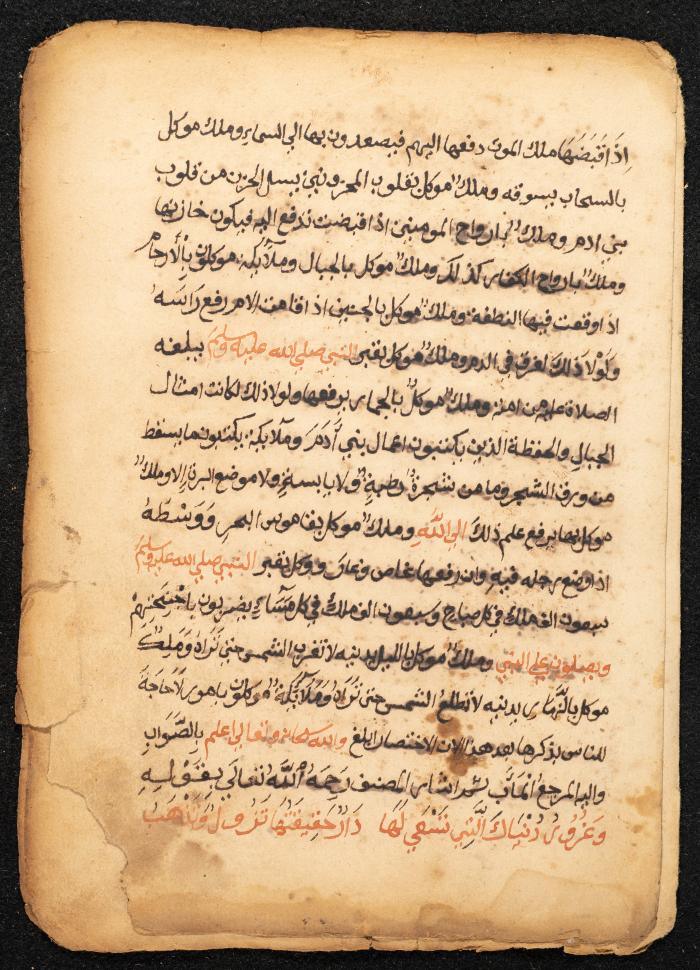 اذَا قبَضَهَا ملك الموت دفعها اليهم فيصعدون بها الي السماء وملك موكل
بالسحاب يسوقه وملك موكل بقلوب المحزونين يسل الحزن من قلوب
بني ادم وملك بارواح المومنين اذا قبضت تدفع اليه فيكون خازنها
وملك بارواح الكفار كذلك وملك موكل بالجبال وملآئكة موكلون بالأرحام
اذا وقعت فيها النطفة وملك موكل بالجنين اذا اقامت الام رفع رَاسَهُ
وَلَوْلَا ذلك لغرق في الدم وملك موكل بقبر النبي صلي الله عليه وسلم يبلغه
الصلاة عليه من امته وملك موكل بالجمار يرفعها ولولا ذلك لكانت امثال
الجبال والحفظة الذين يكتبون اعمال بني أَدَمَ وملآئكة يكتبون ما يسقط
من ورق الشجر وما من شجرة رطبة ولا يابسة ولا موضع ابرة الا وملك
موكل بها يرفع علم ذلك الي اللَّهِ وملك موكل بقاموس البحر وَوَسْطَهُ
اذا وضع رجله فيه فاض وان رفعها غاض وغار ووكل بقبر النبي صلي الله عليه وسلم
سبعون الف ملك في كل صباح وسبعون الف ملك في كل مَسَآءٍ يضربون باجنحتهم
ويصلون علي النبي وملك موكل بالليل بدنيه لا تغرب الشمس حتي تَرَاهُ وَمَلك
موكل بالنَّهار بدنيه لا تطلع الشمس حتي تَرَاهُ وَمَلَآئِكَة موكلون بامور لَاحَاجَةَ
للناس بذكرها بعد هذا لان الاختصار ابلغ والله سبحانه وتعالي اعلم بِالصَّوَابِ
واليه المرجع المَآب ثم اشار المصنف رَحِمَهُ اللَّه تَعَالَي بِقَوْلِهِ
وَغَرُورُ دُنْيَاكَ الَّتِي تَسْعَي لَهَا دَارٌ حَقِيقَتُهَا تَزُولُ وَتَذْهَبُ